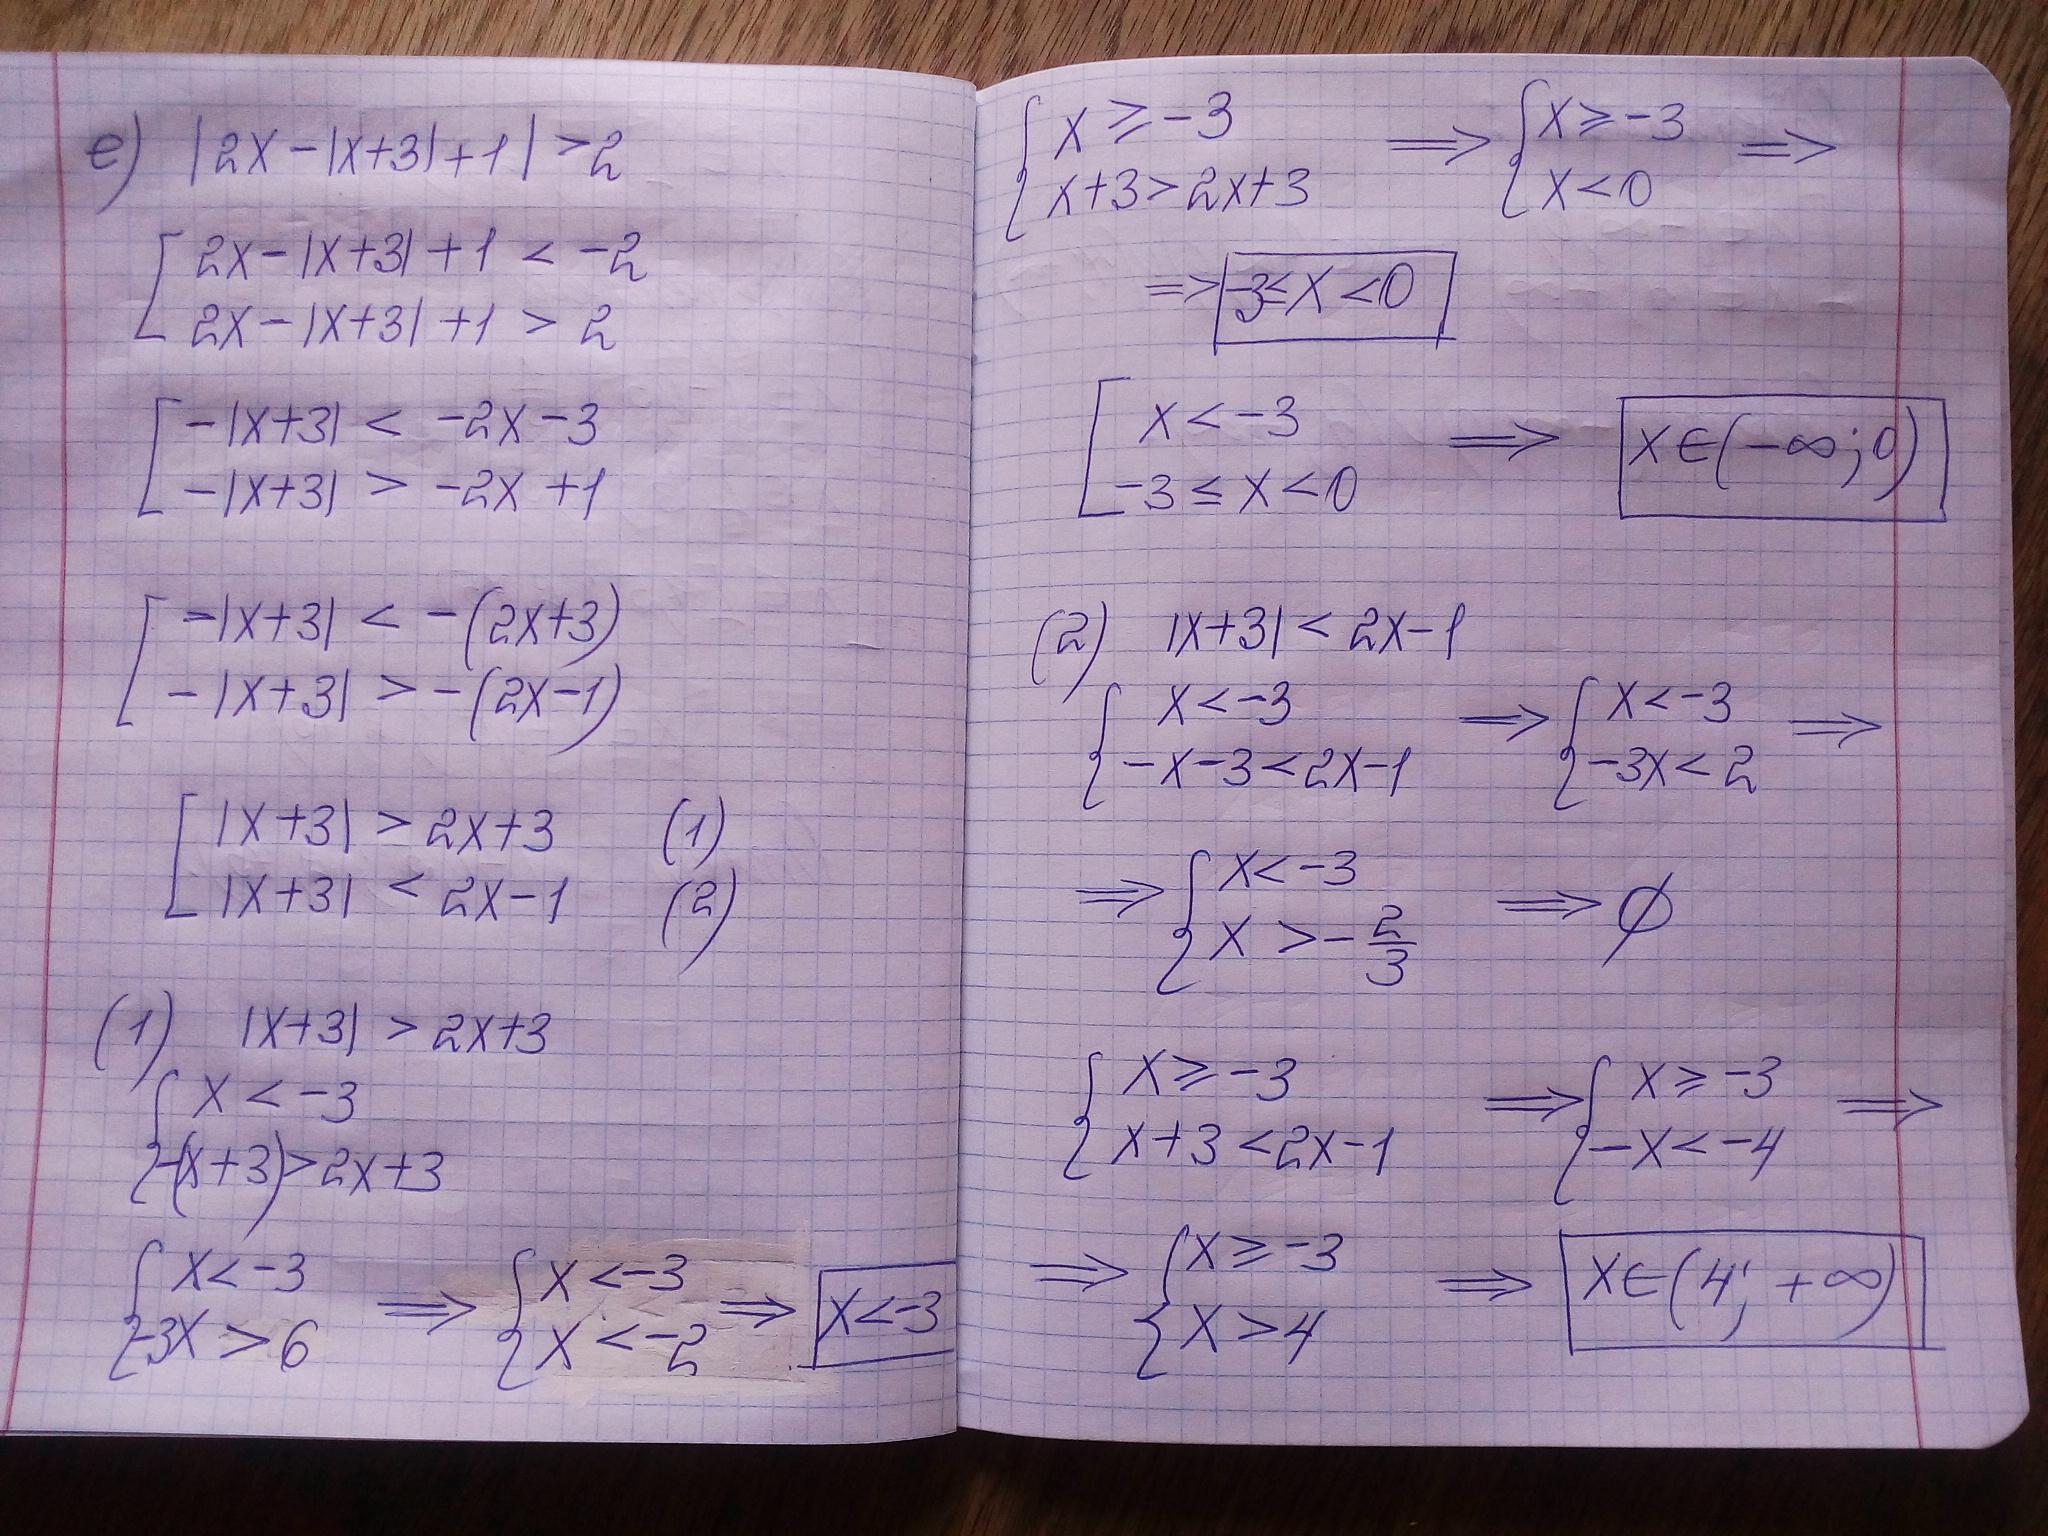 e) |2x-|x+3|+1|>2
[ 2x-|x+3|+1 < -2
2x-|x+3|+1 > 2
[ -|x+3| < -2x-3
-|x+3| > -2x+1
[ -|x+3| < -(2x+3)
-|x+3| > -(2x-1)
[ |x+3| > 2x+3 (1)
|x+3| < 2x-1 (2)
(1) |x+3| > 2x+3
{ x < -3
-(x+3)>2x+3
{ x<-3 => { x<-3 => x<-3
-3x>6 x<-2
{ x≥-3 => { x≥-3 =>
x+3>2x+3 x<0
=> -3≤x<0
[ x<-3 => x∈(-∞;0)
-3≤x<0
(2) |x+3|<2x-1
{ x<-3 => { x<-3 =>
-x-3<2x-1 -3x<2
=> { x<-3 => ∅
x>-2/3
{ x≥-3 => { x≥-3 =>
x+3<2x-1 -x<-4
=> { x≥-3 => x∈(4;+∞)
x>4